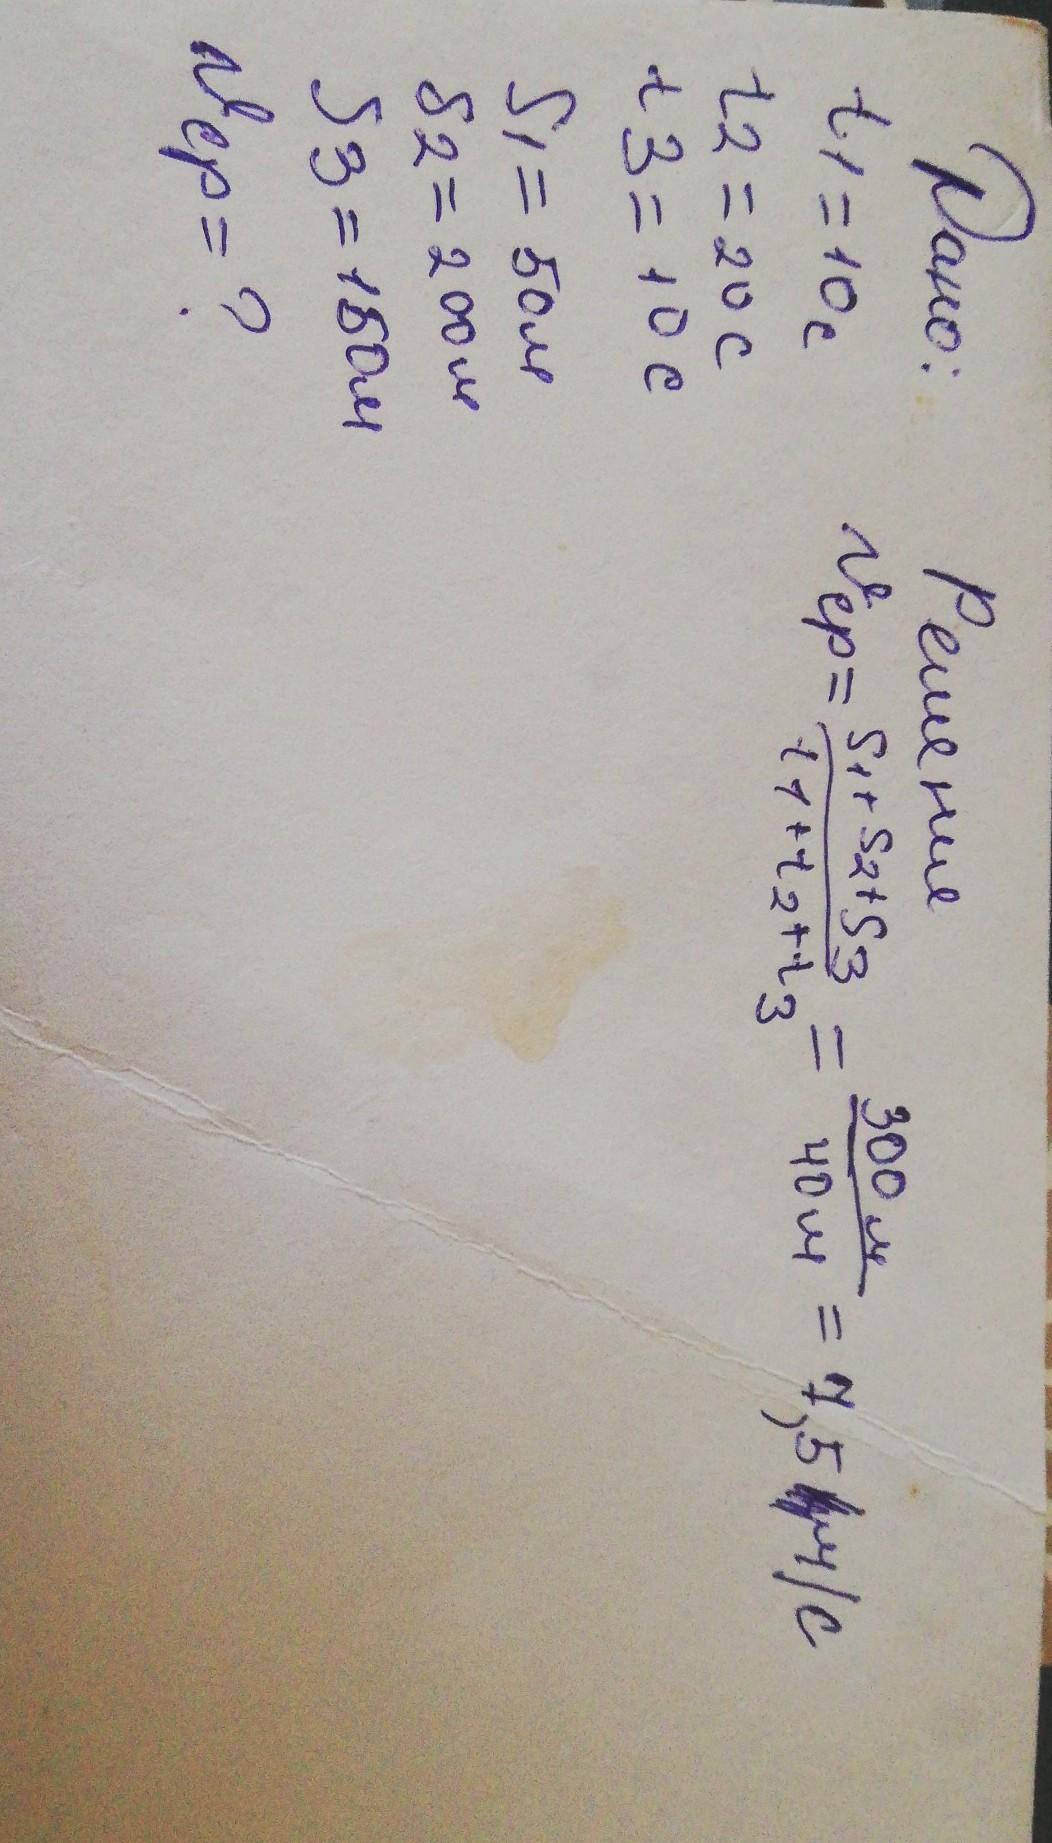 Дано:
t1 = 10с
t2 = 20с
t3 = 10с
S1 = 50м
S2 = 200м
S3 = 150м
Vср = ?
Решение
Vср = S1+S2+S3 / t1+t2+t3 = 300м / 40м = 7,5 м/с